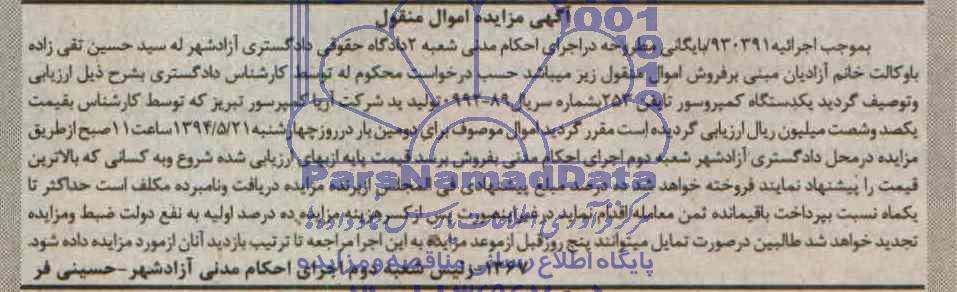 آگهی مزایده اموال منقول
بموجب اجرائیه ۹۳۰۳۹۱/بایگانی مطروحه دراجرای احکام مدنی شعبه ۲دادگاه حقوقی دادگستری آزادشهر له سید حسین تقی زاده
باوکالت خانم آزادیان مبنی برفروش اموال منقول زیر میباشد حسب درخواست محکوم له توسط کارشناس دادگستری بشرح ذیل ارزیابی
وتوصیف گردید یکدستگاه کمپروسور تایفن ۲۵۳بشماره سریال ۸۹-۰۹۹۲ تولید ید شرکت آریا کمپرسور تبریز که توسط کارشناس بقیمت
یکصد وشصت میلیون ریال ارزیابی گردیده است مقرر گردید اموال موصوف برای دومین بار درروزچهارشنبه ۱۳۹۴/۵/۲۱ساعت ۱۱صبح ازطریق
مزایده درمحل دادگستری آزادشهر شعبه دوم اجرای احکام مدنی بفروش برسد قیمت پایه ازبهای ارزیابی شده شروع وبه کسانی که بالاترین
قیمت را پیشنهاد نمایند فروخته خواهد شد ده درصد مبلغ پیشنهادی فی المجلس ازبرنده مزایده دریافت ونامبرده مکلف است حداکثر تا
یکماه نسبت بپرداخت باقیمانده ثمن معامله اقدام نماید درغیراینصورت پس ازکسرهزینه مزایده ده درصد اولیه به نفع دولت ضبط ومزایده
تجدید خواهد شد طالبین درصورت تمایل میتوانند پنج روزقبل ازموعد مزایده به این اجرا مراجعه تا ترتیب بازدید آنان ازمورد مزایده داده شود.
۱۳۶۷-رئیس شعبه دوم اجرای احکام مدنی آزادشهر-حسینی فر
ParsNamadData
پایگاه اطلاع رسانی مناقصه و مزایده